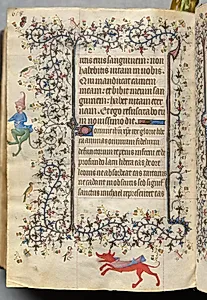 eritis eius sanguinem: non
habebitis vitam in vobis
Qui manducat carnem
meam: et bibit meum san
guinem: habet vitam eter
nam. Et ego resuscitabo eu
in novissimo die.
Domine ihu xpe rex glorie libe
ra animas omnium fidelium
defunctorum de penis inferni et de
profundo lacu libera eas de ore
leonis ne absorbeat eas tartarus
ne cadant in obscura sed signif
sanctus michael representet eas